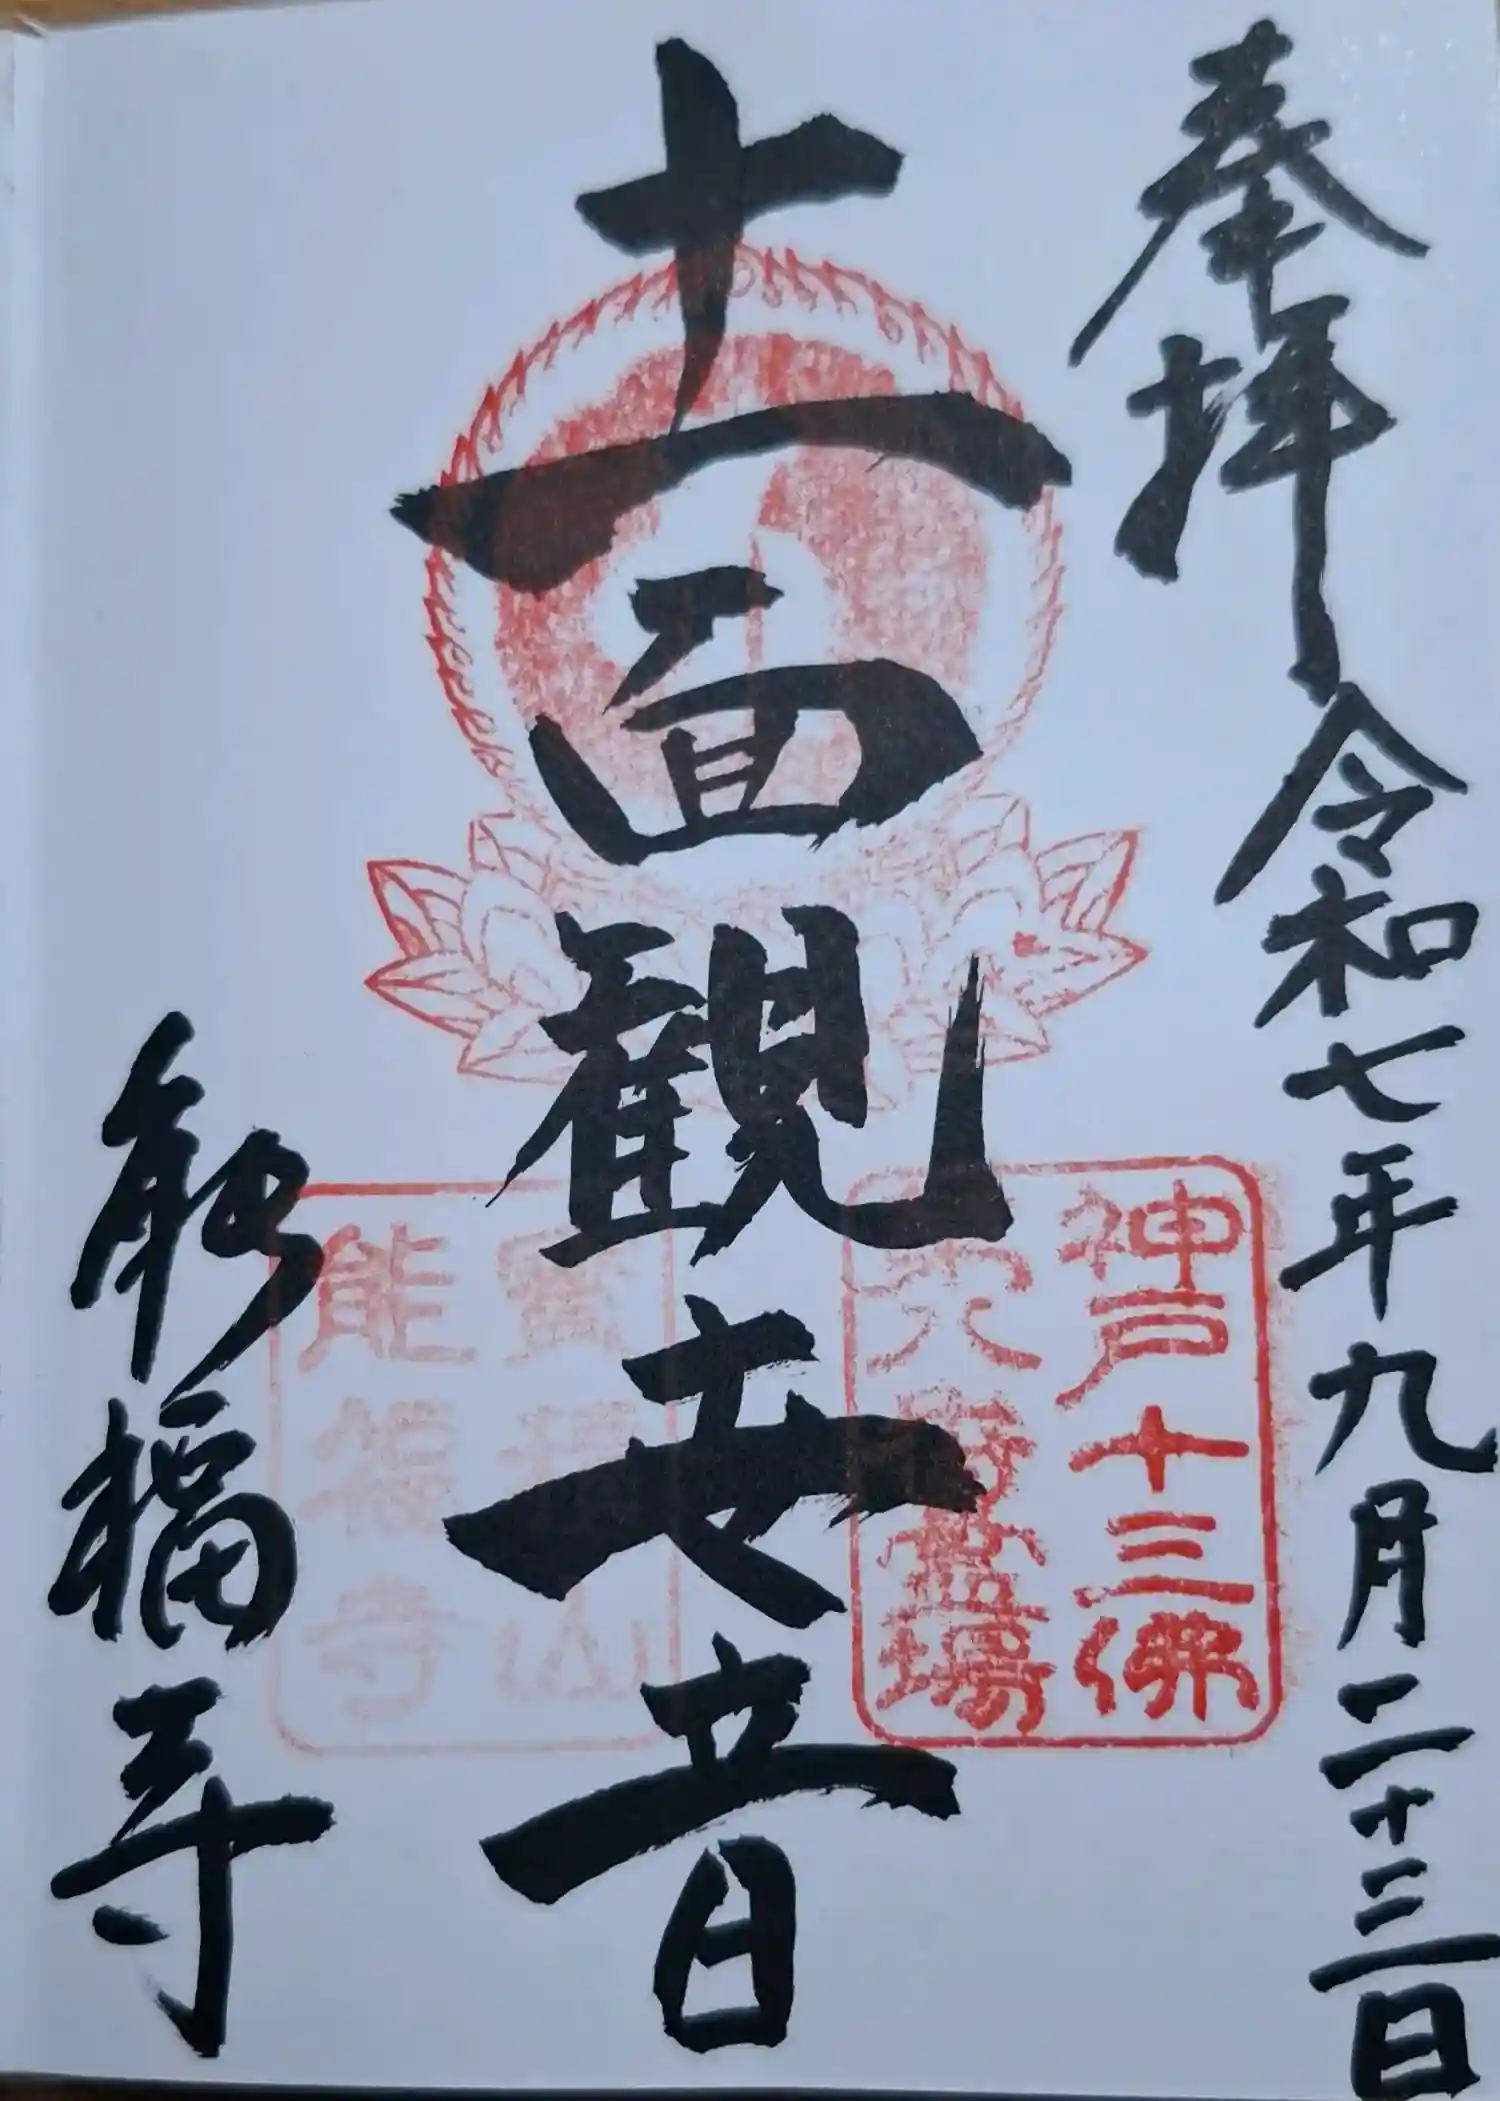 奉拝 令和七年九月二十三日
十一面観世音
能福寺
神戸十三佛
第六番霊場
寶積山
能福寺